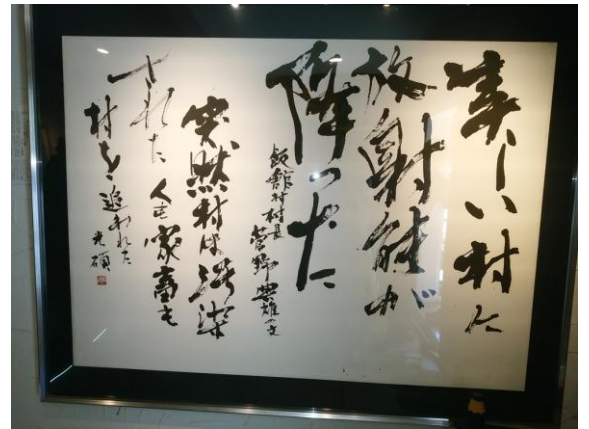 美しい村に
放射能が
降った
飯舘村村長 菅野典雄の文
突然村は汚染
された 人も家畜も
村を追われた
光碩